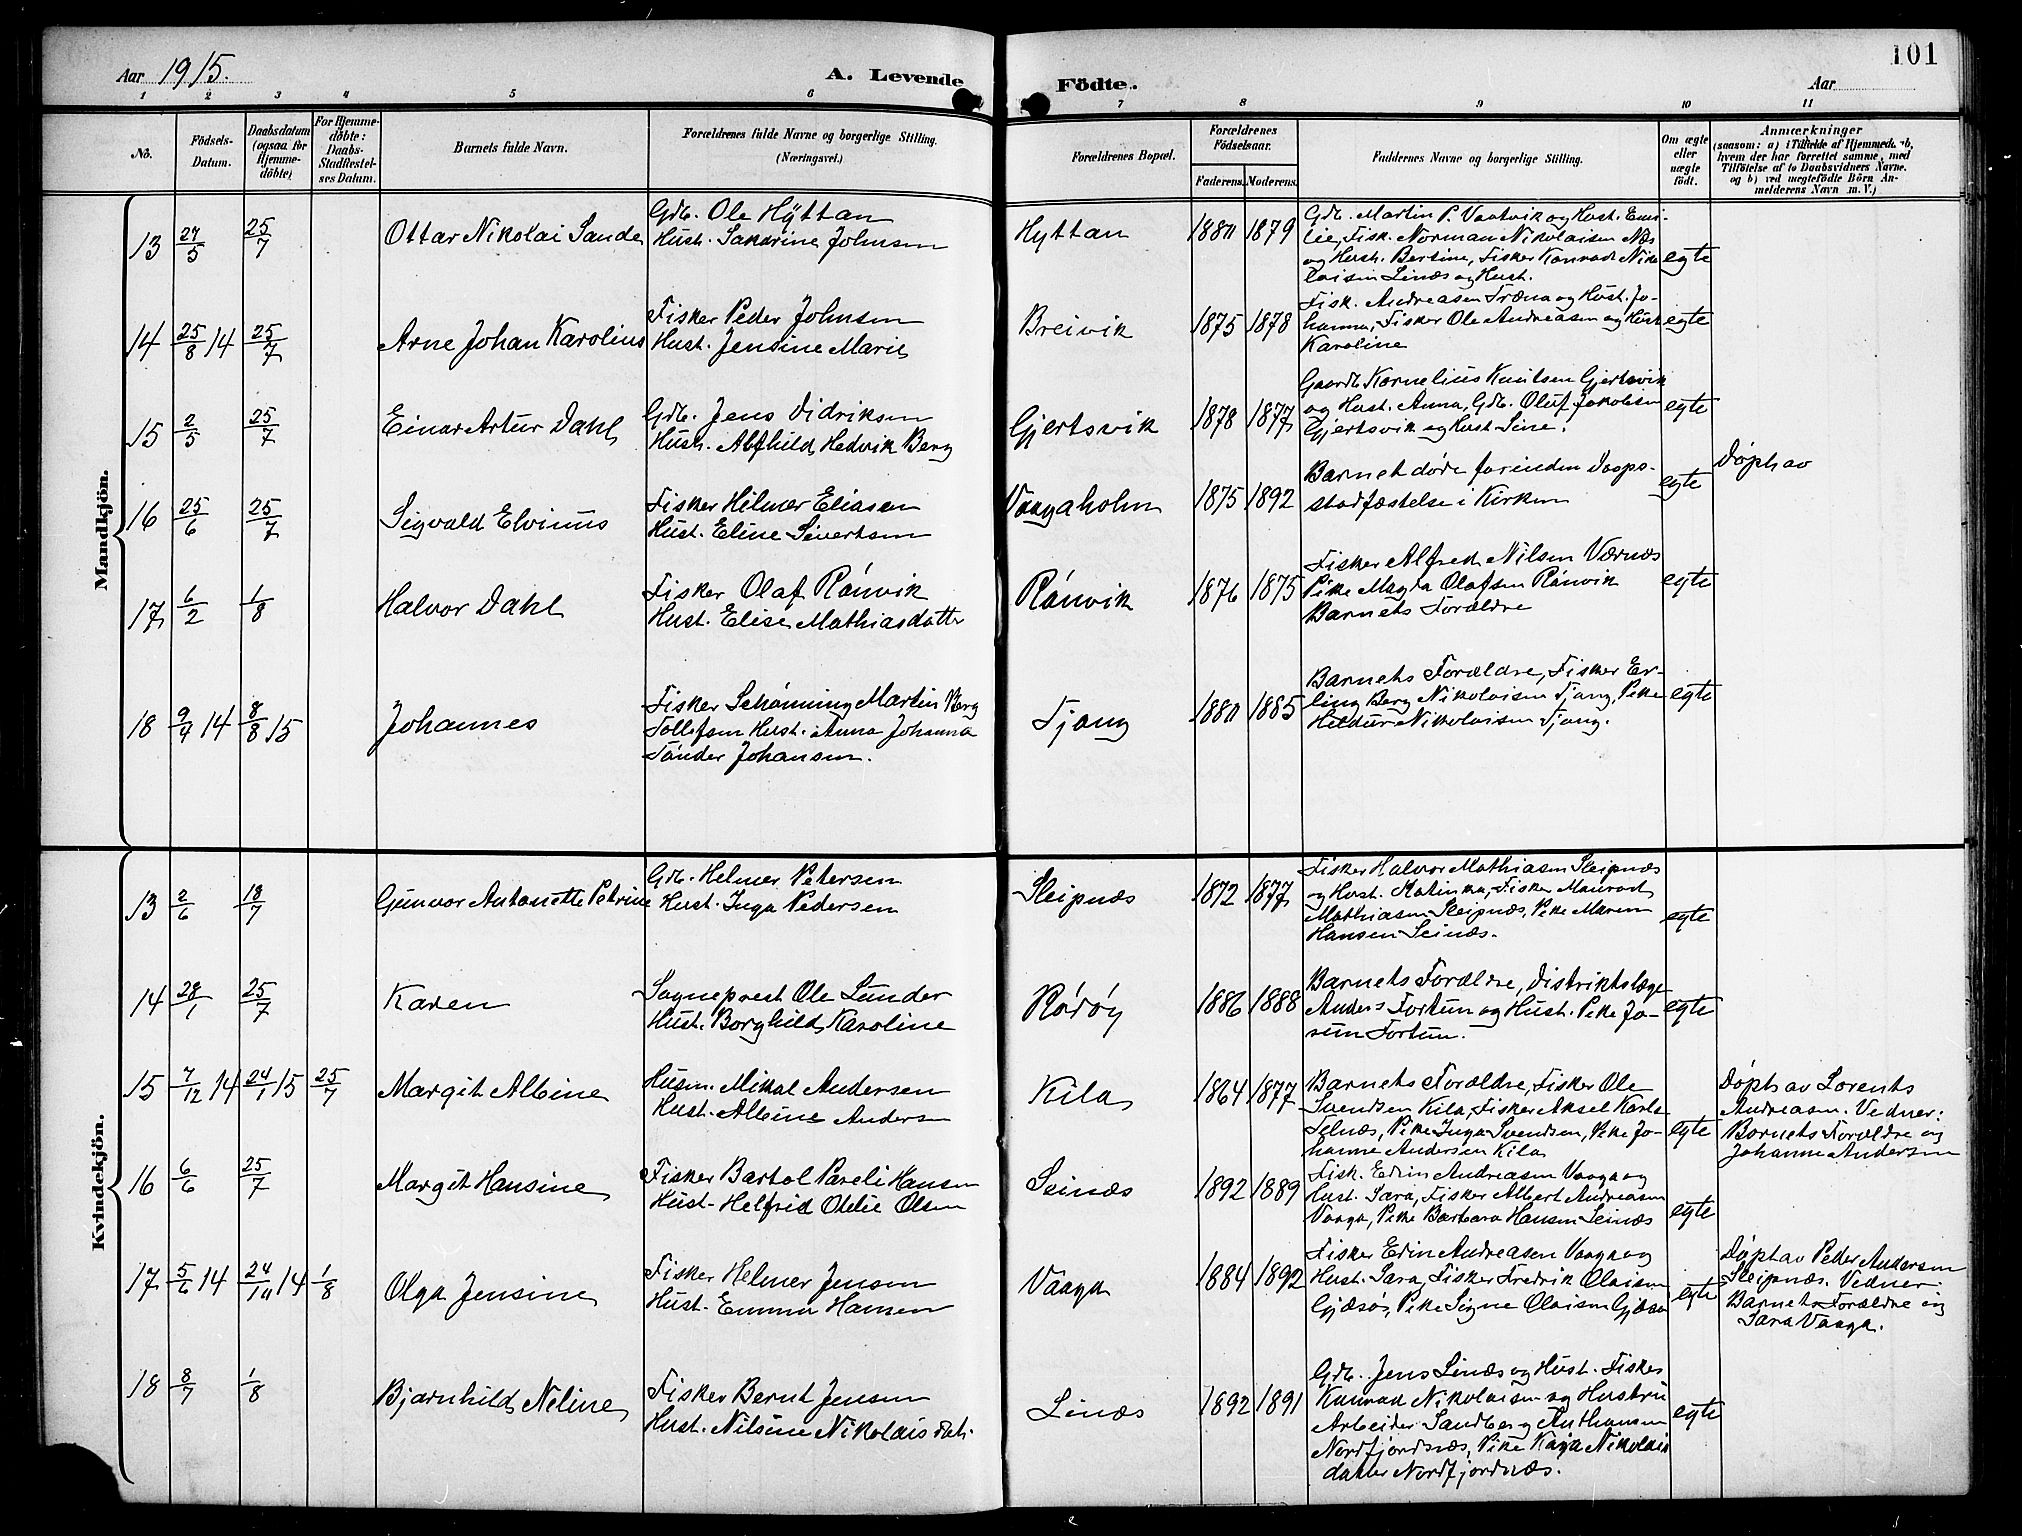 Aar 1915.
A. Levende
Födte.
Aar
101
1 2 3 4 5 6 7 8 9 10 11
No.
Födsels-
Datum.
Daabsdatum
(ogsaa for
Hjemme-
döbte)
For Hjemme-
döbte:
Daabs-
Stadfæstel-
ses Datum.
Barnets fulde Navn.
Forældrenes fulde Navne og borgerlige Stilling.
(Næringsvei.)
Forældrenes Bopæl.
Forældrenes
Födselsaar.
Faderens. Moderens.
Faddernes Navne og borgerlige Stilling.
Om ægte
eller
uægte
födt.
Anmærkninger
(saasom: a) i Tilfælde af Hjemmedaab,
hvem der har forrettet samme, med
Tilföielse af to Daabsvidners Navne.
og b) ved uægtefödte Börn An-
melderens Navn m. V.)
Mandkjön.
13 27/5 25/7
Ottar Nikolai Sande
Gdb. Ole Hÿttan
Hust. Sakarine Johnsen
Hyttan
1880 1879
Gdb. Martin P. Vaatvik og Hust. Emi-
lie, Fisk. Norman Nikolaisen Næs
og Hust. Bersine, Fisker Konrad Niko
laisen Linæs og Hust.
egte
14 25/8 14 25/7
Arne Johan Karolius
Fisker Peder Johnsen
Hust. Jensine Marie
Breivik
1875 1878
Fisk. Andreasen Træna og Hust. Jo-
hanna, Fisker Ole Andreasen og Hust
Karoline
egte
15 2/5 25/7
Einar Artur Dahl
Gdb. Jens Didriksen
Hust. Alfhild Hedvik Berg
Gjertsvik
1878 1877
Gaardb Kornelius Knutsen Gjertsvik
og Hust. Anna, Gdb. Oluf Jakobsen
Gjertsvik og Hust Sine.
egte
16 25/6 25/7
Sigvald Elvinus
Fisker Hilmer Eliasen
Hust. Eline Sivertsen
Vaagaholm
1875 1892
Barnet døde forinden Daaps-
stadfæstelse i Kirken
egte
Døpt av
17 6/2 1/8
Halvor Dahl
Fisker Olaf Rónvik
Hust. Elise Mathiasdatter
Rónvik
1876 1875
Fisker Alfred Nilsen Værnæs
Pike Magda Olafsen Rónvik
Barnets Forældre
egte
18 9/9 14 8/8 15
Johannes
Fisker Schønning Martin Berg
Tollefsen Hust. Anna Johanna
Tønder Johansen.
Tjong
1880 1885
Barnets Forældre, Fisker Er-
ling Berg Nikolaisen Tjong, Pike
Hildur Nikolaisen Tjong.
egte
Kvindekjön.
13 2/6 18/7
Gunvor Antonette Petrine
Gdb. Helmer Petersen
Hust. Inga Pedersen
Sleipnæs
1872 1877
Fisker Halvor Mathiasen Sleipnæs
og Hust. Katinka, Fisker Maurad
Mathiasen Sleipnæs, Pike Maren
Hansen Seinæs.
egte
14 28/1 25/7
Karen
Sogneprest Ole Lunder
Hust. Borghild Karoline
Ródóy
1886 1888
Barnets Forældre, Distriktslæge
Anders Fortun og Hust. Pike Jo-
sun Fortun.
egte
15 7/12 14 24/1 15 25/7
Margit Albine
Husm. Mikal Andersen
Hust. Albine Anders
Kila
1864 1877
Barnets Forældre, Fisker Ole
Svendsen Kila, Fisker Aksel Karls
Selnæs, Pike Inga Svendsen, Pike Jo-
hanne Andersen Kila
egte
Døpt av Lorents
Andreasen. Vedner:
Barnets Forældre og
Johanne Andersen
16 6/6 25/7
Margit Hansine
Fisker Bartol Pareli Hansen
Hust. Helfrid Otelie Olsen
Seinæs
1892 1889
Fisk. Edin Andreasen Vaaga og
Hust. Sara, Fisker Albert Andreasen
Vaaga, Pike Barbara Hansen Seinæs
egte
17 5/6 14 24/10 14 1/8
Olga Jensine
Fisker Helmer Jensen
Hust. Emma Hansen
Vaaga
1884 1892
Fisker Edin Andreasen Vaaga og
Hust. Sara, Fisker Fredrik Olaisen
Gjæsø, Pike Signe Olaisen Gjæsø
egte
Døpt av Peder Andersen
Sleipnæs. Vedner:
Barnets Forældre og
Sara Vaaga.
18 8/7 1/8
Bjarnhild Neline
Fisker Bernt Jensen
Hust. Nilsine Nikolaisdat.
Linæs
1892 1891
Gdb. Jens Linæs og Hust. Fisker
Konrad Nikolaisen og Hustru
Arbeider Sandberg Anthonsen
Nordfjordnæs, Pike Kaja Nikolais
datter Nordfjordnæs.
egte